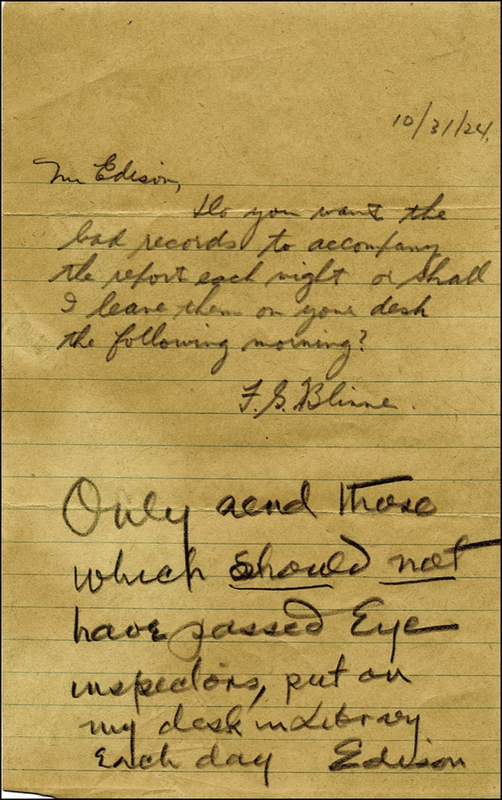 10/31/24,
Mr Edison,
Do you want the
bad records to accompany
the report each night or shall
I leave them on your desk
the following morning?
F. G. Blinne.
Only send those
which should not
have passed Eye
inspectors, put on
my desk in Library
Each day Edison